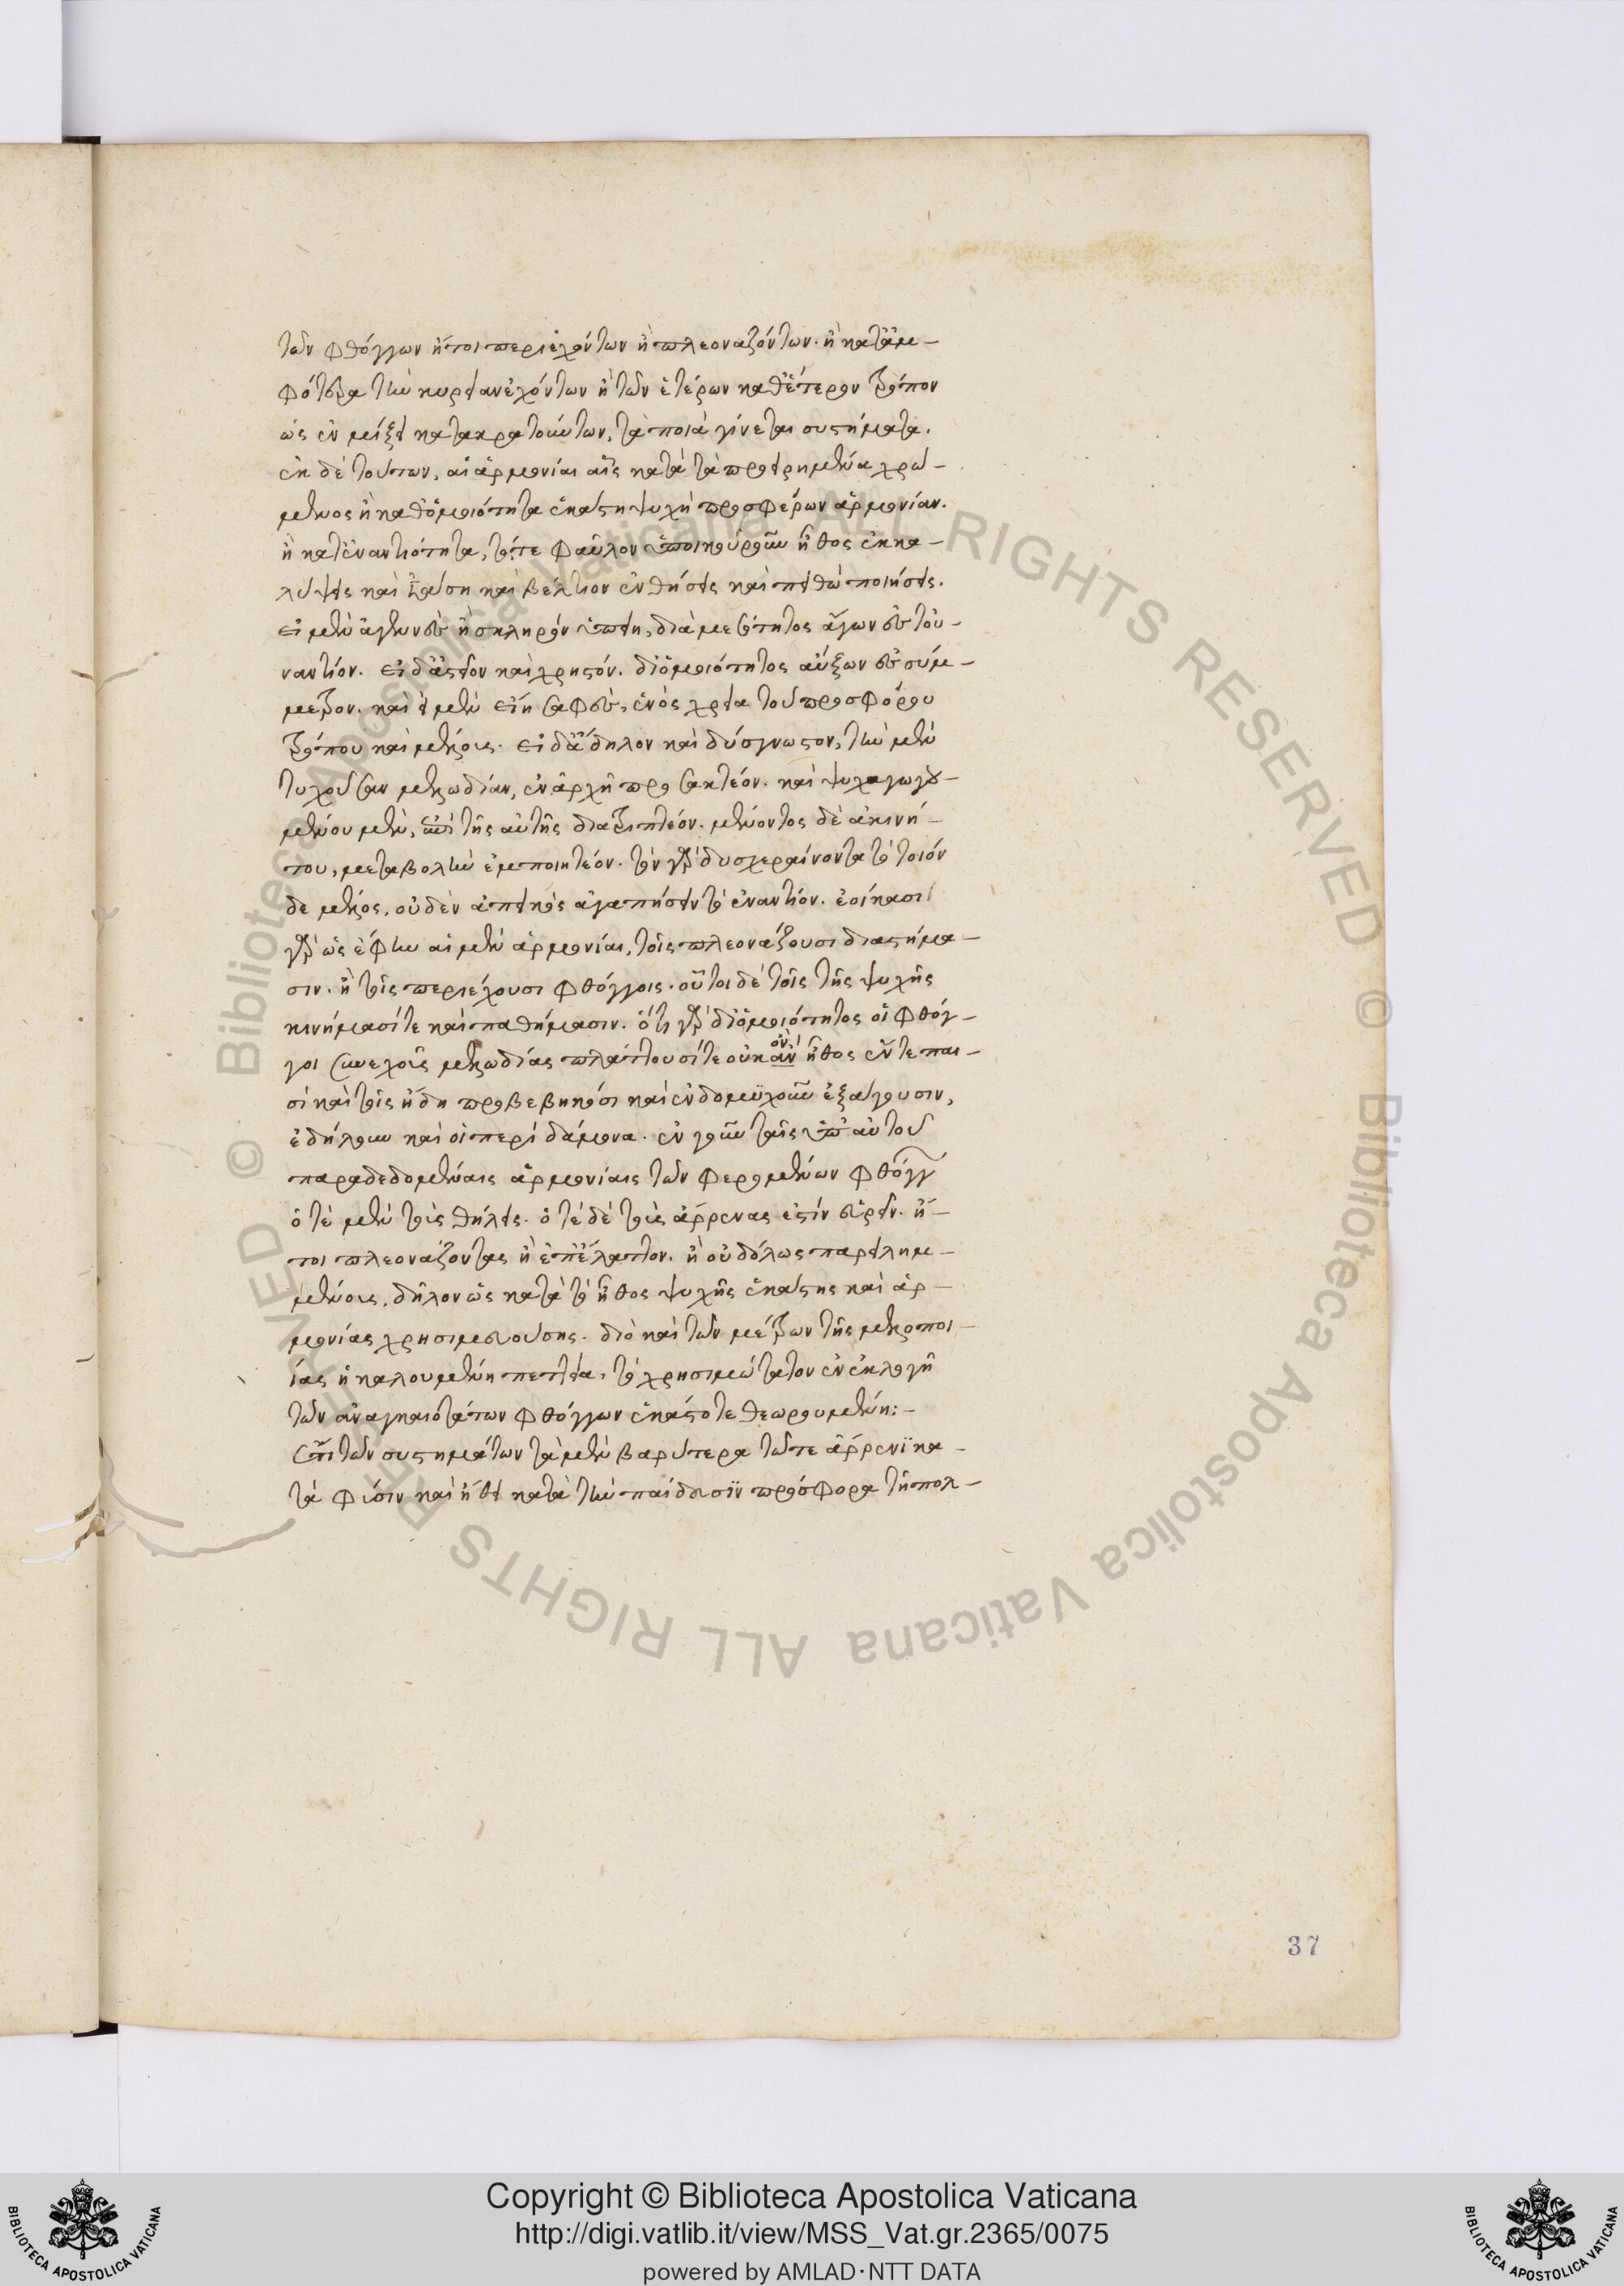 τῶν φθόγγων ἤτοι περιεχόντων ἢ πλεοναζόντων. ἢ κατἄμ-
φότερα τὴν κυρείαν ἐχόντων ἢ τῶν ἑτέρων καθ' ἕτερον τρόπον
ὡς ἐν μίξει κατακρατούντων, τὰ ποιὰ γίνεται συστήματα.
ἐκ δὲ τούτων, αἱ ἁρμονίαι αἷς κατὰ τὰ προειρημένα χρώ-
μενος ἢ καθ' ὁμοιότητα ἑκάστη ψυχῇ προσφέρων ἁρμονίαν.
ἢ κατ' ἐναντιότητα, τό τε φαῦλον ὑποικουροῦν ἦθος ἐκκα-
λύψεις καὶ ἰάσῃ καὶ βέλτιον ἐνθήσεις καὶ πειθὼ ποιήσεις.
εἰ μὲν ἀγεννὲς ἢ σκληρὸν ὑπείη, διὰ μεσότητος ἄγων εἰς τοὐ-
ναντίον. εἰ δ' ἀστεῖον καὶ χρηστόν. δι' ὁμοιότητος αὔξων εἰς σύμ-
μετρον. καὶ εἰ μὲν εἴη σαφὲς, ἑνὸς χρεία τοῦ προσφόρου
τρόπου καὶ μέλους. εἰ δ' ἄδηλον καὶ δύσγνωστον, τὴν μὲν
τυχοῦσαν μελῳδίαν, ἐν ἀρχῇ προσακτέον. καὶ ψυχαγωγου-
μένου μὲν, ἐπὶ τῆς αὐτῆς διατριπτέον. μένοντος δὲ ἀκινή-
του, μεταβολὴν ἐμποιητέον. τὸν γὰρ δυσχεραίνοντα τὸ τοιόν
δε μέλος, οὐδὲν ἀπεικὸς ἀγαπήσειν τὸ ἐναντίον. ἐοίκασι
γὰρ ὡς ἔφην αἱ μὲν ἁρμονίαι, τοῖς πλεονάζουσι διαστήμα-
σιν. ἢ τοῖς περιέχουσι φθόγγοις. οὗτοι δὲ τοῖς τῆς ψυχῆς
κινήμασί τε καὶ παθήμασιν. ὅτι γὰρ δι' ὁμοιότητος οἱ φθόγ-
γοι συνεχοῦς μελῳδίας πλάττουσί τε οὐκ ἂν ὂν ἦθος ἔν τε παι-
σὶ καὶ τοῖς ἤδη προβεβηκόσι καὶ ἐνδομυχοῦν ἐξάγουσιν,
ἐδήλουν καὶ οἱ περὶ δάμωνα. ἐν γοῦν ταῖς ὑπ' αὐτοῦ
παραδεδομέναις ἁρμονίαις τῶν φερομένων φθόγγ
ὁτὲ μὲν τοὺς θήλεις. ὁτὲ δὲ τοὺς ἄρρενας ἐστὶν εὑρεῖν. ἤ-
τοι πλεονάζοντας ἢ ἐπ' ἔλαττον. ἢ οὐδ' ὅλως παρειλημ-
μένους, δῆλον ὡς κατὰ τὸ ἦθος ψυχῆς ἑκάστης καὶ ἁρ-
μονίας χρησιμευούσης. διὸ καὶ τῶν μέτρων τῆς μελοποι-
ίας ἡ καλουμένη πεττεία, τὸ χρησιμώτατον ἐν ἐκλογῇ
τῶν ἀναγκαιοτάτων φθόγγων ἑκάστοτε θεωρουμένη:-
ἔτι τῶν συστημάτων τὰ μὲν βαρύτερα τῷ τε ἄρρενι κα-
τὰ φύσιν καὶ ἤθει κατὰ τὴν παίδευσιν πρόσφορα τῇ πολ-
37
Copyright © Biblioteca Apostolica Vaticana
http://digi.vatlib.it/view/MSS_Vat.gr.2365/0075
powered by AMLAD·NTT DATA